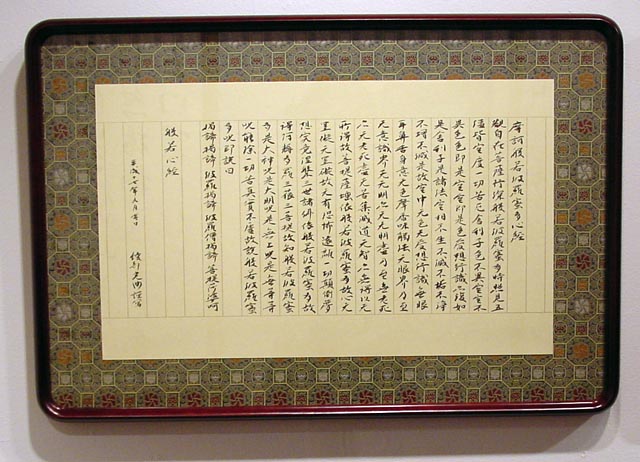 摩訶般若波羅蜜多心経
觀自在菩薩行深般若波羅蜜多時照見五
蘊皆空度一切苦厄舎利子色不異空空不
異色色即是空空即是色受想行識亦復如
是舎利子是諸法空相不生不滅不垢不浄
不増不減是故空中无色无受想行識无眼
耳鼻舌身意无色声香味触法无眼界乃至
无意識界无无明亦无无明尽乃至无老死
亦无老死尽无苦集滅道无智亦无得以无
所得故菩提薩埵依般若波羅蜜多故心无
罣礙无罣礙故无有恐怖遠離一切顛倒夢
想究竟涅槃三世諸仏依般若波羅蜜多故
得阿耨多羅三藐三菩提故知般若波羅蜜
多是大神呪是大明呪是无上呪是无等等
呪能除一切苦真実不虚故説般若波羅蜜
多呪即説曰
羯諦羯諦波羅羯諦波羅僧羯諦菩提薩婆訶
般若心経
平成十七年五月吉日
謹写